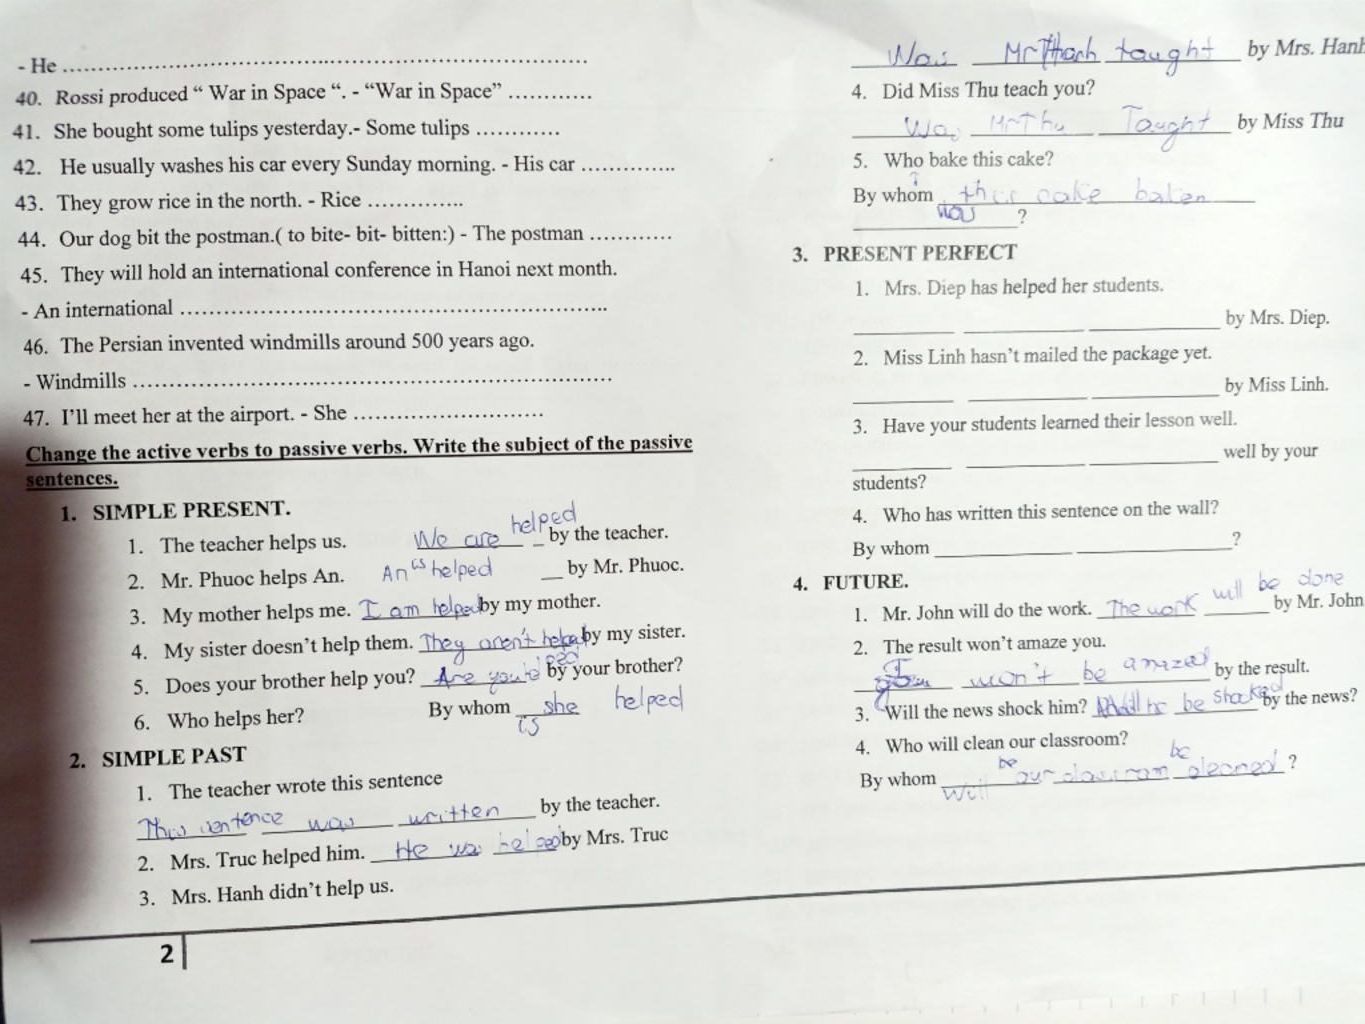 - He ..........................................................................
40. Rossi produced “ War in Space “. - “War in Space” ............
41. She bought some tulips yesterday.- Some tulips ............
42. He usually washes his car every Sunday morning. - His car ..............
43. They grow rice in the north. - Rice ..............
44. Our dog bit the postman.( to bite- bit- bitten:) - The postman ............
45. They will hold an international conference in Hanoi next month.
- An international ..............................................................
46. The Persian invented windmills around 500 years ago.
- Windmills ......................................................................
47. I’ll meet her at the airport. - She ............................
Change the active verbs to passive verbs. Write the subject of the passive
sentences.
1. SIMPLE PRESENT.
1. The teacher helps us. We are helped by the teacher.
2. Mr. Phuoc helps An. An is helped by Mr. Phuoc.
3. My mother helps me. I am helped by my mother.
4. My sister doesn’t help them. They aren't helped by my sister.
5. Does your brother help you? Are you by your brother?
6. Who helps her? By whom is she helped
2. SIMPLE PAST
1. The teacher wrote this sentence
This sentence was written by the teacher.
2. Mrs. Truc helped him. He was helped by Mrs. Truc
3. Mrs. Hanh didn’t help us.
2
Was Mr Thanh taught by Mrs. Hanh
4. Did Miss Thu teach you?
Was Mr Thu Taught by Miss Thu
5. Who bake this cake?
By whom this cake baken
was ?
3. PRESENT PERFECT
1. Mrs. Diep has helped her students.
by Mrs. Diep.
2. Miss Linh hasn’t mailed the package yet.
by Miss Linh.
3. Have your students learned their lesson well.
well by your
students?
4. Who has written this sentence on the wall?
By whom ?
4. FUTURE.
1. Mr. John will do the work. The work will be done by Mr. John
2. The result won’t amaze you.
I won't be amazed by the result.
3. Will the news shock him? be shocked by the news?
4. Who will clean our classroom?
By whom will be our classroom be cleaned ?